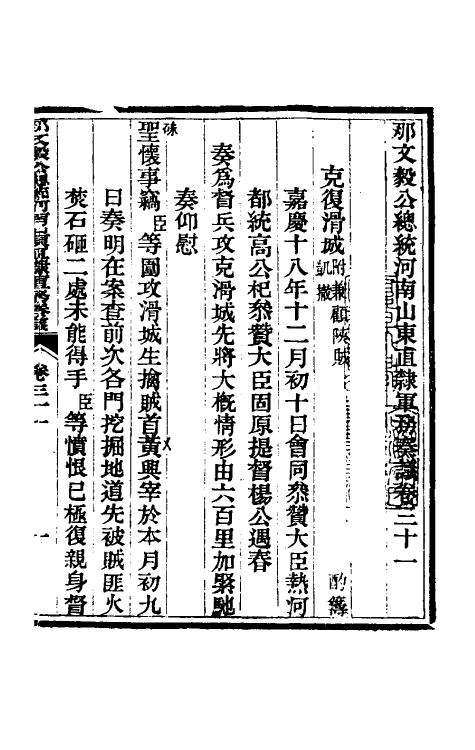 那文毅公總統河南山東直隸軍務奏議卷三十一
克復滑城附兼顧陝賊 酌籌凱撤
嘉慶十八年十二月初十日會同叅贊大臣熱河
都統高公杞叅贊大臣固原提督楊公遇春
奏爲督兵攻克滑城先將大概情形由六百里加緊馳
奏仰慰
硃
聖懷事竊臣等圍攻滑城生擒賊首黃興宰於本月初九
日奏明在案查前次各門挖掘地道先被賊匪火
焚石砸二處未能得手臣等憤恨已極復親身督
那文毅公總統河南山東直隸軍務奏議 卷三十一 一